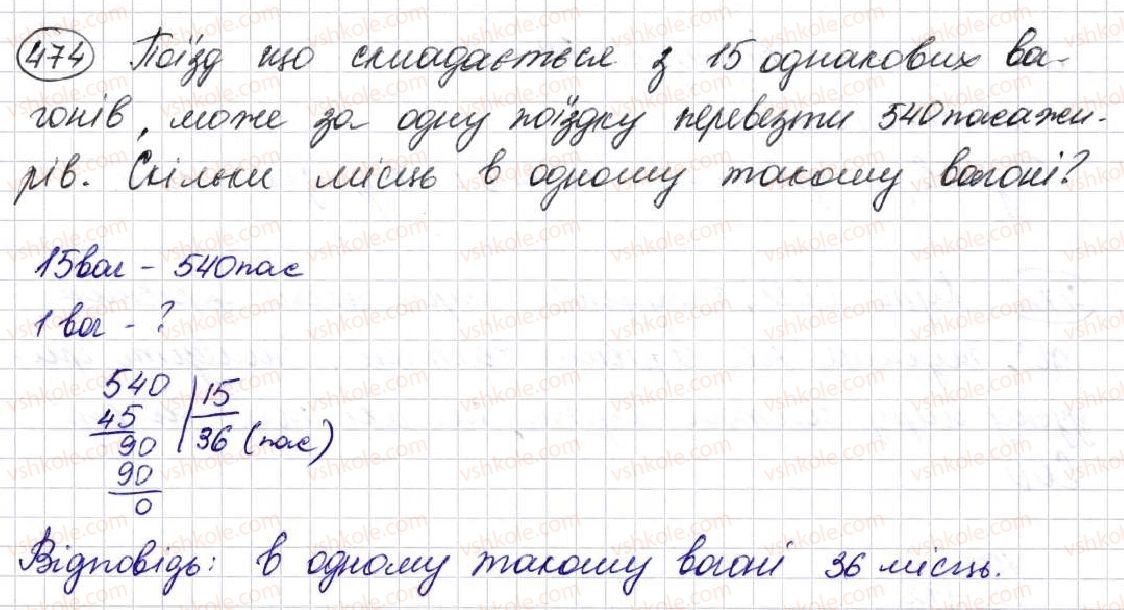 474 Поїзд що складається з 15 однакових ва-
гонів, може за одну поїздку перевезти 540 пасажи-
рів. Скільки місць в одному такому вагоні?
15 ваг - 540 пас
1 ваг - ?
540 | 15
45 36 (пас)
90
90
0
Відповідь: в одному такому вагоні 36 місць.